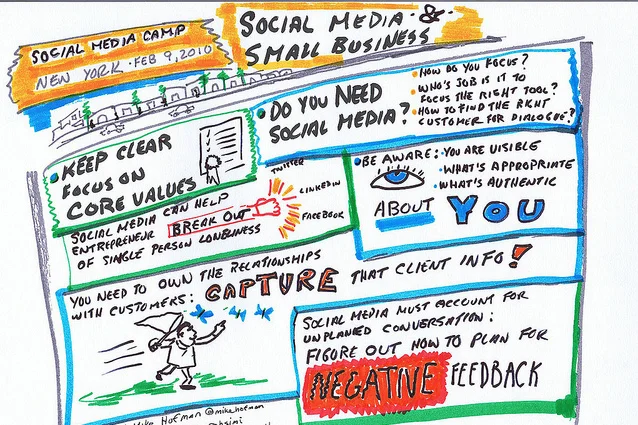 SOCIAL MEDIA CAMP
NEW YORK · FEB 9, 2010
SOCIAL MEDIA · &
SMALL BUSINESS
• DO YOU NEED
SOCIAL MEDIA?
• HOW DO YOU FOCUS?
• WHO'S JOB IS IT TO
FOCUS THE RIGHT TOOL?
• HOW TO FIND THE RIGHT
CUSTOMER FOR DIALOGUE?
• KEEP CLEAR
FOCUS ON
CORE VALUES
SOCIAL MEDIA CAN HELP
ENTREPRENEUR BREAK OUT
OF SINGLE PERSON LONELINESS
TWITTER
LINKEDIN
FACEBOOK
• BE AWARE: • YOU ARE VISIBLE
• WHAT'S APPROPRIATE
• WHAT'S AUTHENTIC
ABOUT YOU
YOU NEED TO OWN THE RELATIONSHIPS
WITH CUSTOMERS: CAPTURE THAT CLIENT INFO!
SOCIAL MEDIA MUST ACCOUNT FOR
UNPLANNED CONVERSATION:
FIGURE OUT HOW TO PLAN FOR
NEGATIVE FEEDBACK
Mike Hofman @mike_hofman